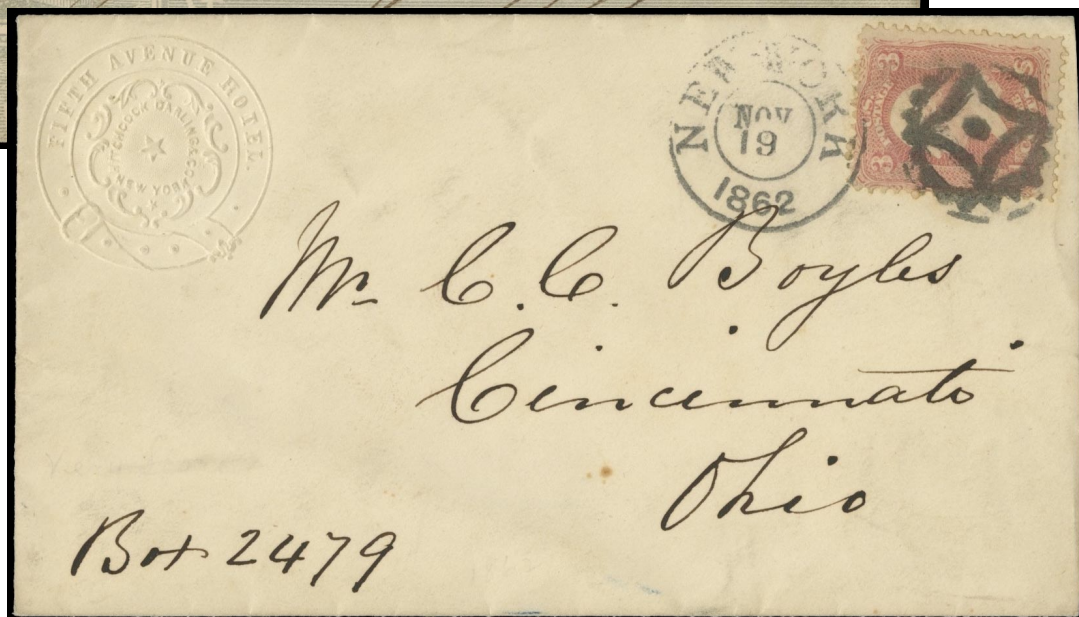 FIFTH AVENUE HOTEL.
HITCHCOCK DARLING & CO.
NEW YORK
NEW YORK
NOV
19
1862
3
3
POSTAGE
Mr. C. C. Boyles
Cincinnati
Ohio
Box 2479